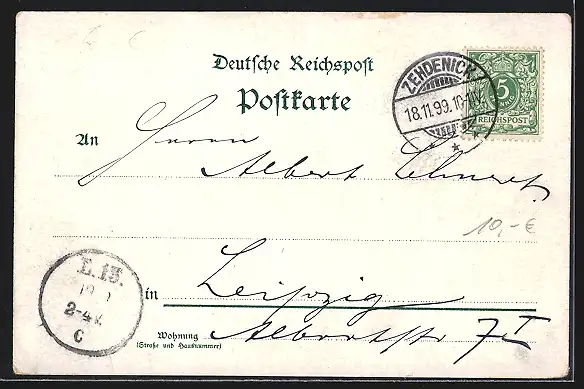 Deutsche Reichspost
Postkarte
ZEHDENICK
18.11.99.10-11V.
5
REICHSPOST
An Herrn
Albert
10,-€
L.13.
2-4N.
C
in Leipzig
Wohnung Albertstr 7 I
(Straße und Hausnummer)